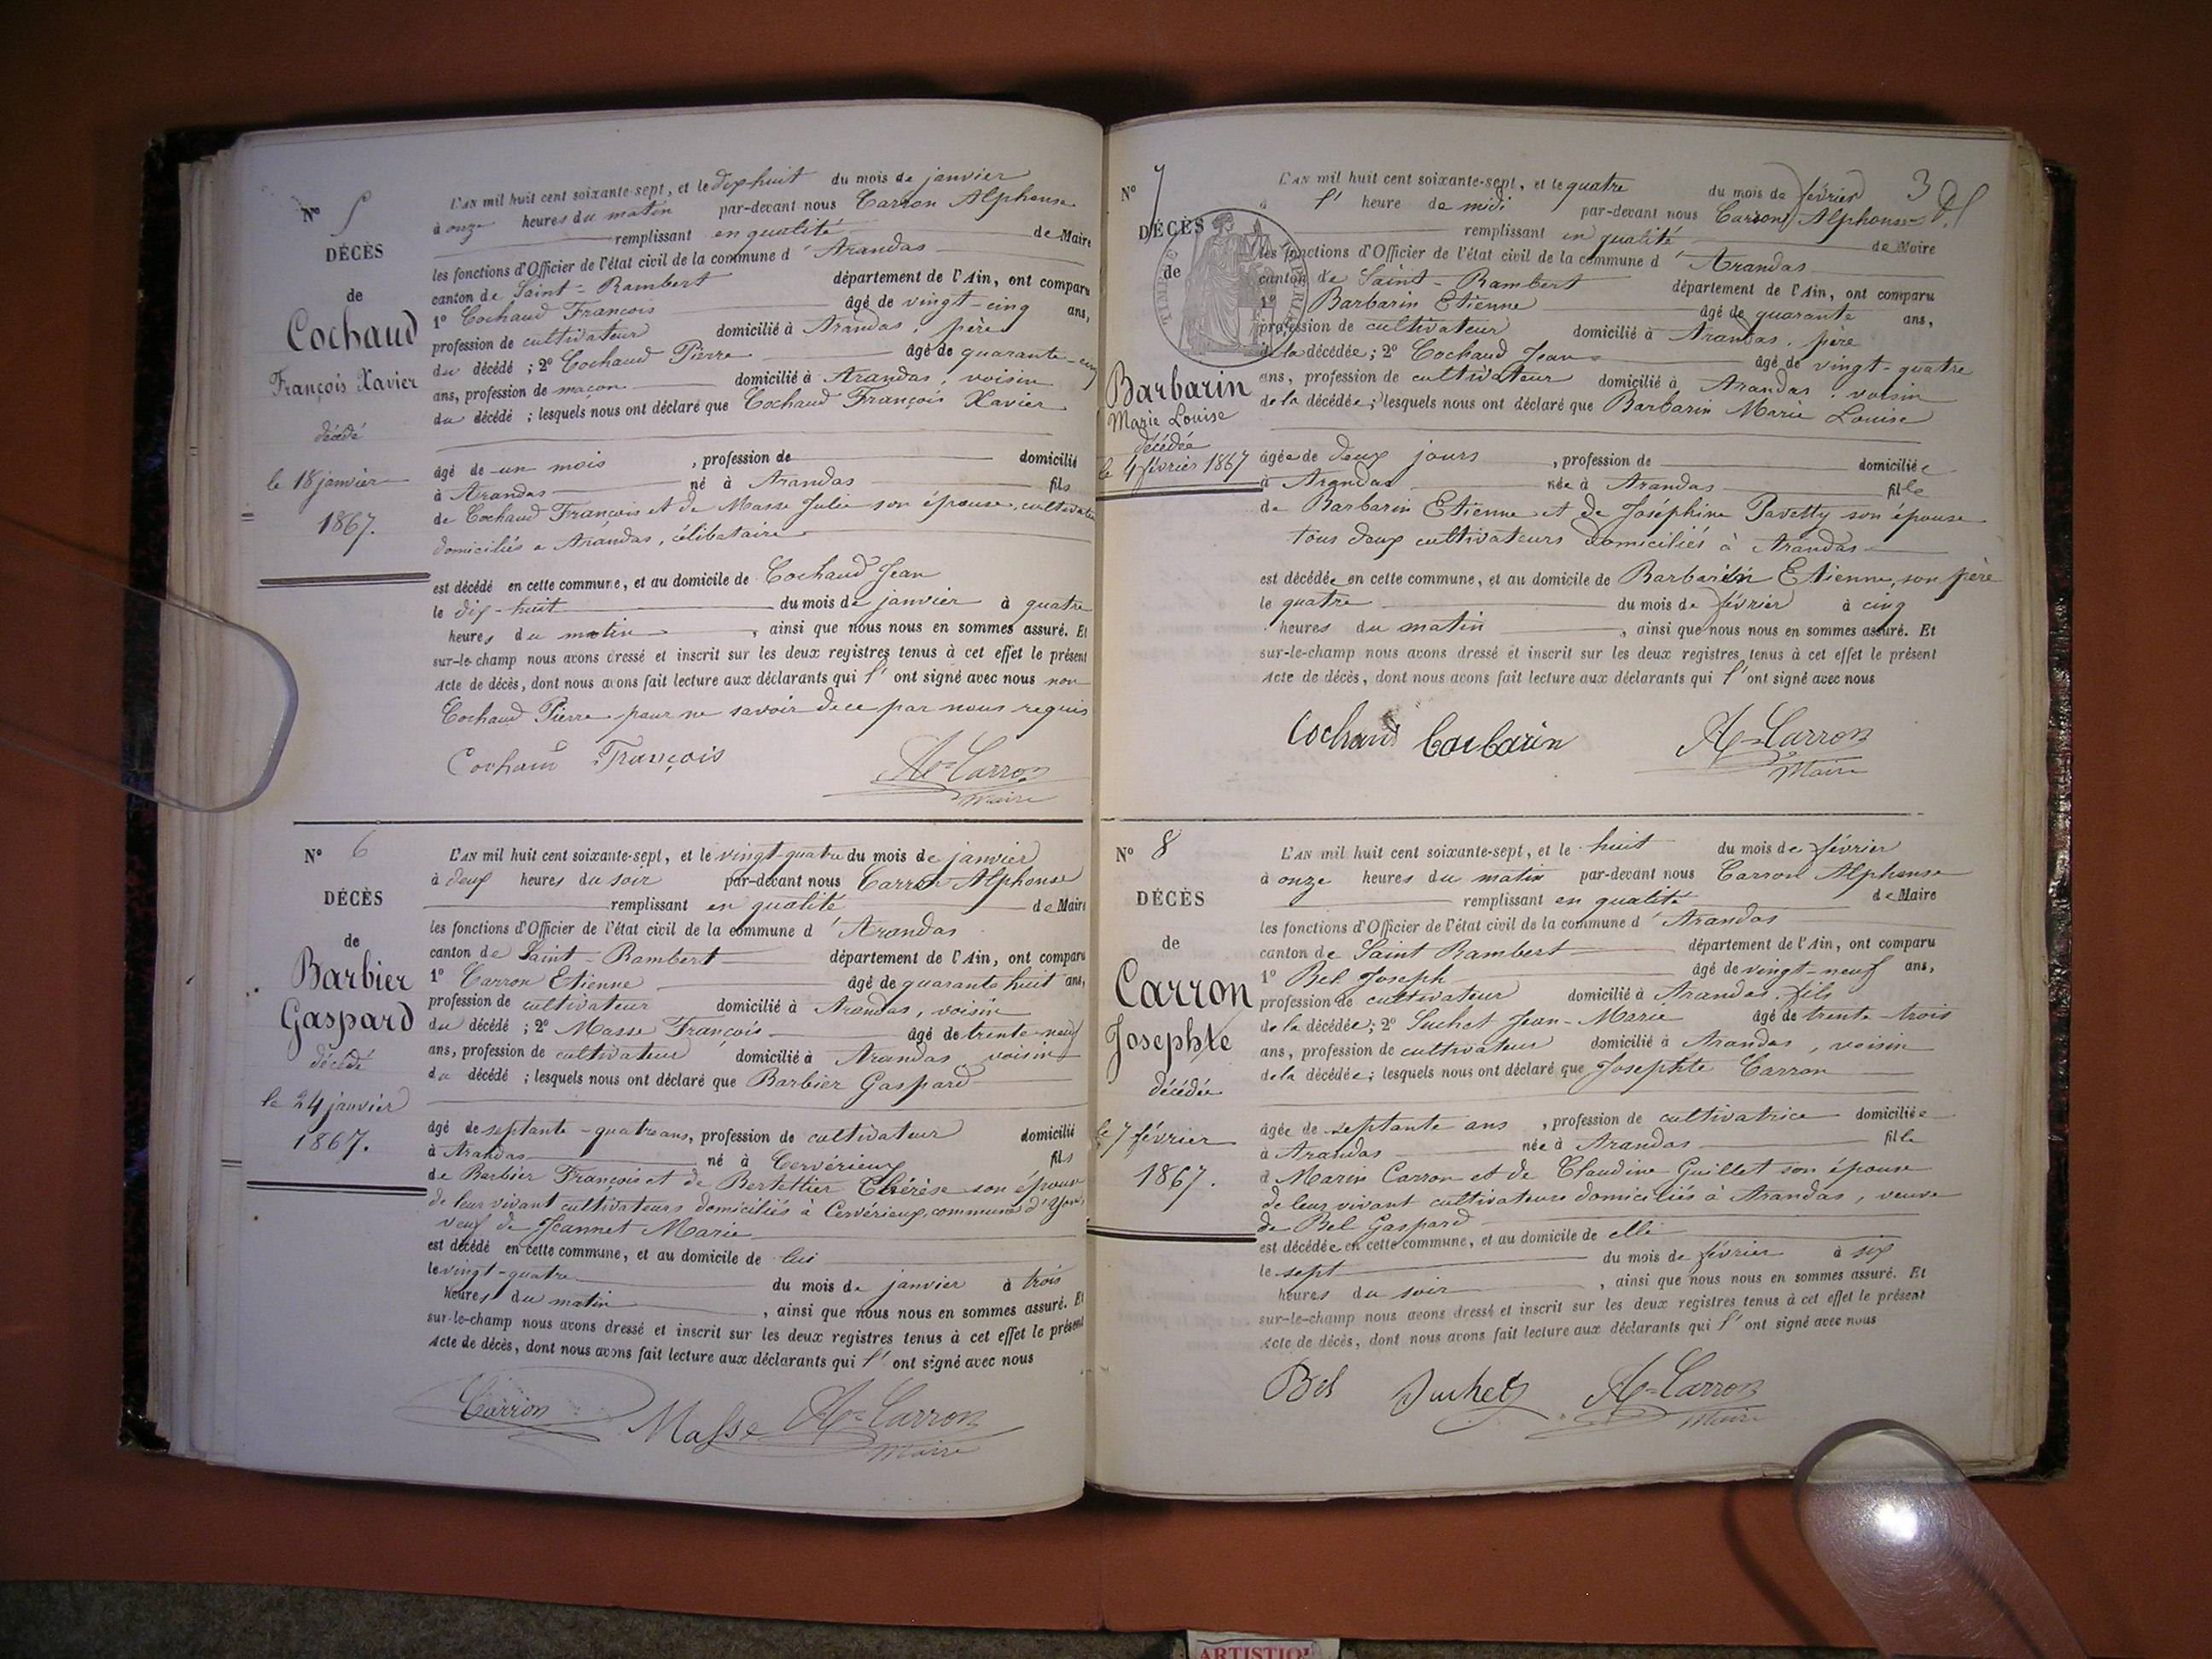 N° 5
DÉCÈS
de
Cochaud
François Xavier
décédé
le 18 janvier
1867.
L'AN mil huit cent soixante-sept, et le dix huit du mois de janvier
à onze heures du matin par-devant nous Carron Alphonse
remplissant en qualité de Maire
les fonctions d'Officier de l'état civil de la commune d'Arandas
canton de Saint-Rambert département de l'Ain, ont comparu
1° Cochaud François âgé de vingt-cinq ans,
profession de cultivateur domicilié à Arandas, père
du décédé ; 2° Cochaud Pierre âgé de quarante-cinq
ans, profession de maçon domicilié à Arandas, voisin
du décédé ; lesquels nous ont déclaré que Cochaud François Xavier
âgé de un mois , profession de domicilié
à Arandas né à Arandas fils
de Cochaud François et de Masse Julie son épouse, cultivateurs
domiciliés a Arandas, célibataire
est décédé en cette commune, et au domicile de Cochaud Jean
le dix-huit du mois de janvier à quatre
heures du matin , ainsi que nous nous en sommes assuré. Et
sur-le-champ nous avons dressé et inscrit sur les deux registres tenus à cet effet le présent
Acte de décès, dont nous avons fait lecture aux déclarants qui l' ont signé avec nous non
Cochaud Pierre pour ne savoir de ce par nous requis
Cochaud François
A. Carron
Maire
N° 6
DÉCÈS
de
Barbier
Gaspard
décédé
le 24 janvier
1867.
L'AN mil huit cent soixante-sept, et le vingt-quatre du mois de janvier
à deux heures du soir par-devant nous Carron Alphonse
remplissant en qualité de Maire
les fonctions d'Officier de l'état civil de la commune d'Arandas
canton de Saint-Rambert département de l'Ain, ont comparu
1° Carron Etienne âgé de quarante huit ans,
profession de cultivateur domicilié à Arandas, voisin
du décédé ; 2° Masse François âgé de trente-neuf
ans, profession de cultivateur domicilié à Arandas voisin
du décédé ; lesquels nous ont déclaré que Barbier Gaspard
âgé de septante-quatre ans, profession de cultivateur domicilié
à Arandas né à Cervérieux fils
de Barbier François et de Bertettier Thérèse son épouse
de leur vivant cultivateurs domiciliés à Cervérieux, commune d'
veuf de Jeannet Marie
est décédé en cette commune, et au domicile de lui
le vingt-quatre du mois de janvier à trois
heures du matin , ainsi que nous nous en sommes assuré. Et
sur-le-champ nous avons dressé et inscrit sur les deux registres tenus à cet effet le présent
Acte de décès, dont nous avons fait lecture aux déclarants qui l' ont signé avec nous
Carron Masse A. Carron
Maire
3
N° 7
DÉCÈS
de
TIMBRE IMPÉRIAL
Barbarin
Marie Louise
décédée
le 4 février 1867
L'AN mil huit cent soixante-sept, et le quatre du mois de février
à l' heure de midi par-devant nous Carron Alphonse
remplissant en qualité de Maire
les fonctions d'Officier de l'état civil de la commune d'Arandas
canton de Saint-Rambert département de l'Ain, ont comparu
1° Barbarin Etienne âgé de quarante ans,
profession de cultivateur domicilié à Arandas, père
de la décédée ; 2° Cochaud Jean âgé de vingt-quatre
ans, profession de cultivateur domicilié à Arandas, voisin
de la décédée ; lesquels nous ont déclaré que Barbarin Marie Louise
âgée de deux jours , profession de domiciliée
à Arandas née à Arandas fille
de Barbarin Etienne et de Joséphine Pavetty son épouse
tous deux cultivateurs domiciliés à Arandas
est décédée en cette commune, et au domicile de Barbarin Etienne, son père
le quatre du mois de février à cinq
heures du matin , ainsi que nous nous en sommes assuré. Et
sur-le-champ nous avons dressé et inscrit sur les deux registres tenus à cet effet le présent
Acte de décès, dont nous avons fait lecture aux déclarants qui l' ont signé avec nous
Cochaud barbarin A. Carron
Maire
N° 8
DÉCÈS
de
Carron
Josephte
décédée
le 7 février
1867.
L'AN mil huit cent soixante-sept, et le huit du mois de février
à onze heures du matin par-devant nous Carron Alphonse
remplissant en qualité de Maire
les fonctions d'Officier de l'état civil de la commune d'Arandas
canton de Saint Rambert département de l'Ain, ont comparu
1° Bel Joseph âgé de vingt-neuf ans,
profession de cultivateur domicilié à Arandas, fils
de la décédée ; 2° Suchet Jean-Marie âgé de trente-trois
ans, profession de cultivateur domicilié à Arandas, voisin
de la décédée ; lesquels nous ont déclaré que Josephte Carron
âgée de septante ans , profession de cultivatrice domiciliée
à Arandas née à Arandas fille
d Marin Carron et de Claudine Guillet son épouse
de leur vivant cultivateurs domiciliés à Arandas, veuve
de Bel Gaspard
est décédée en cette commune, et au domicile de elle
le sept du mois de février à six
heures du soir , ainsi que nous nous en sommes assuré. Et
sur-le-champ nous avons dressé et inscrit sur les deux registres tenus à cet effet le présent
Acte de décès, dont nous avons fait lecture aux déclarants qui l' ont signé avec nous
Bel Suchet A. Carron
Maire